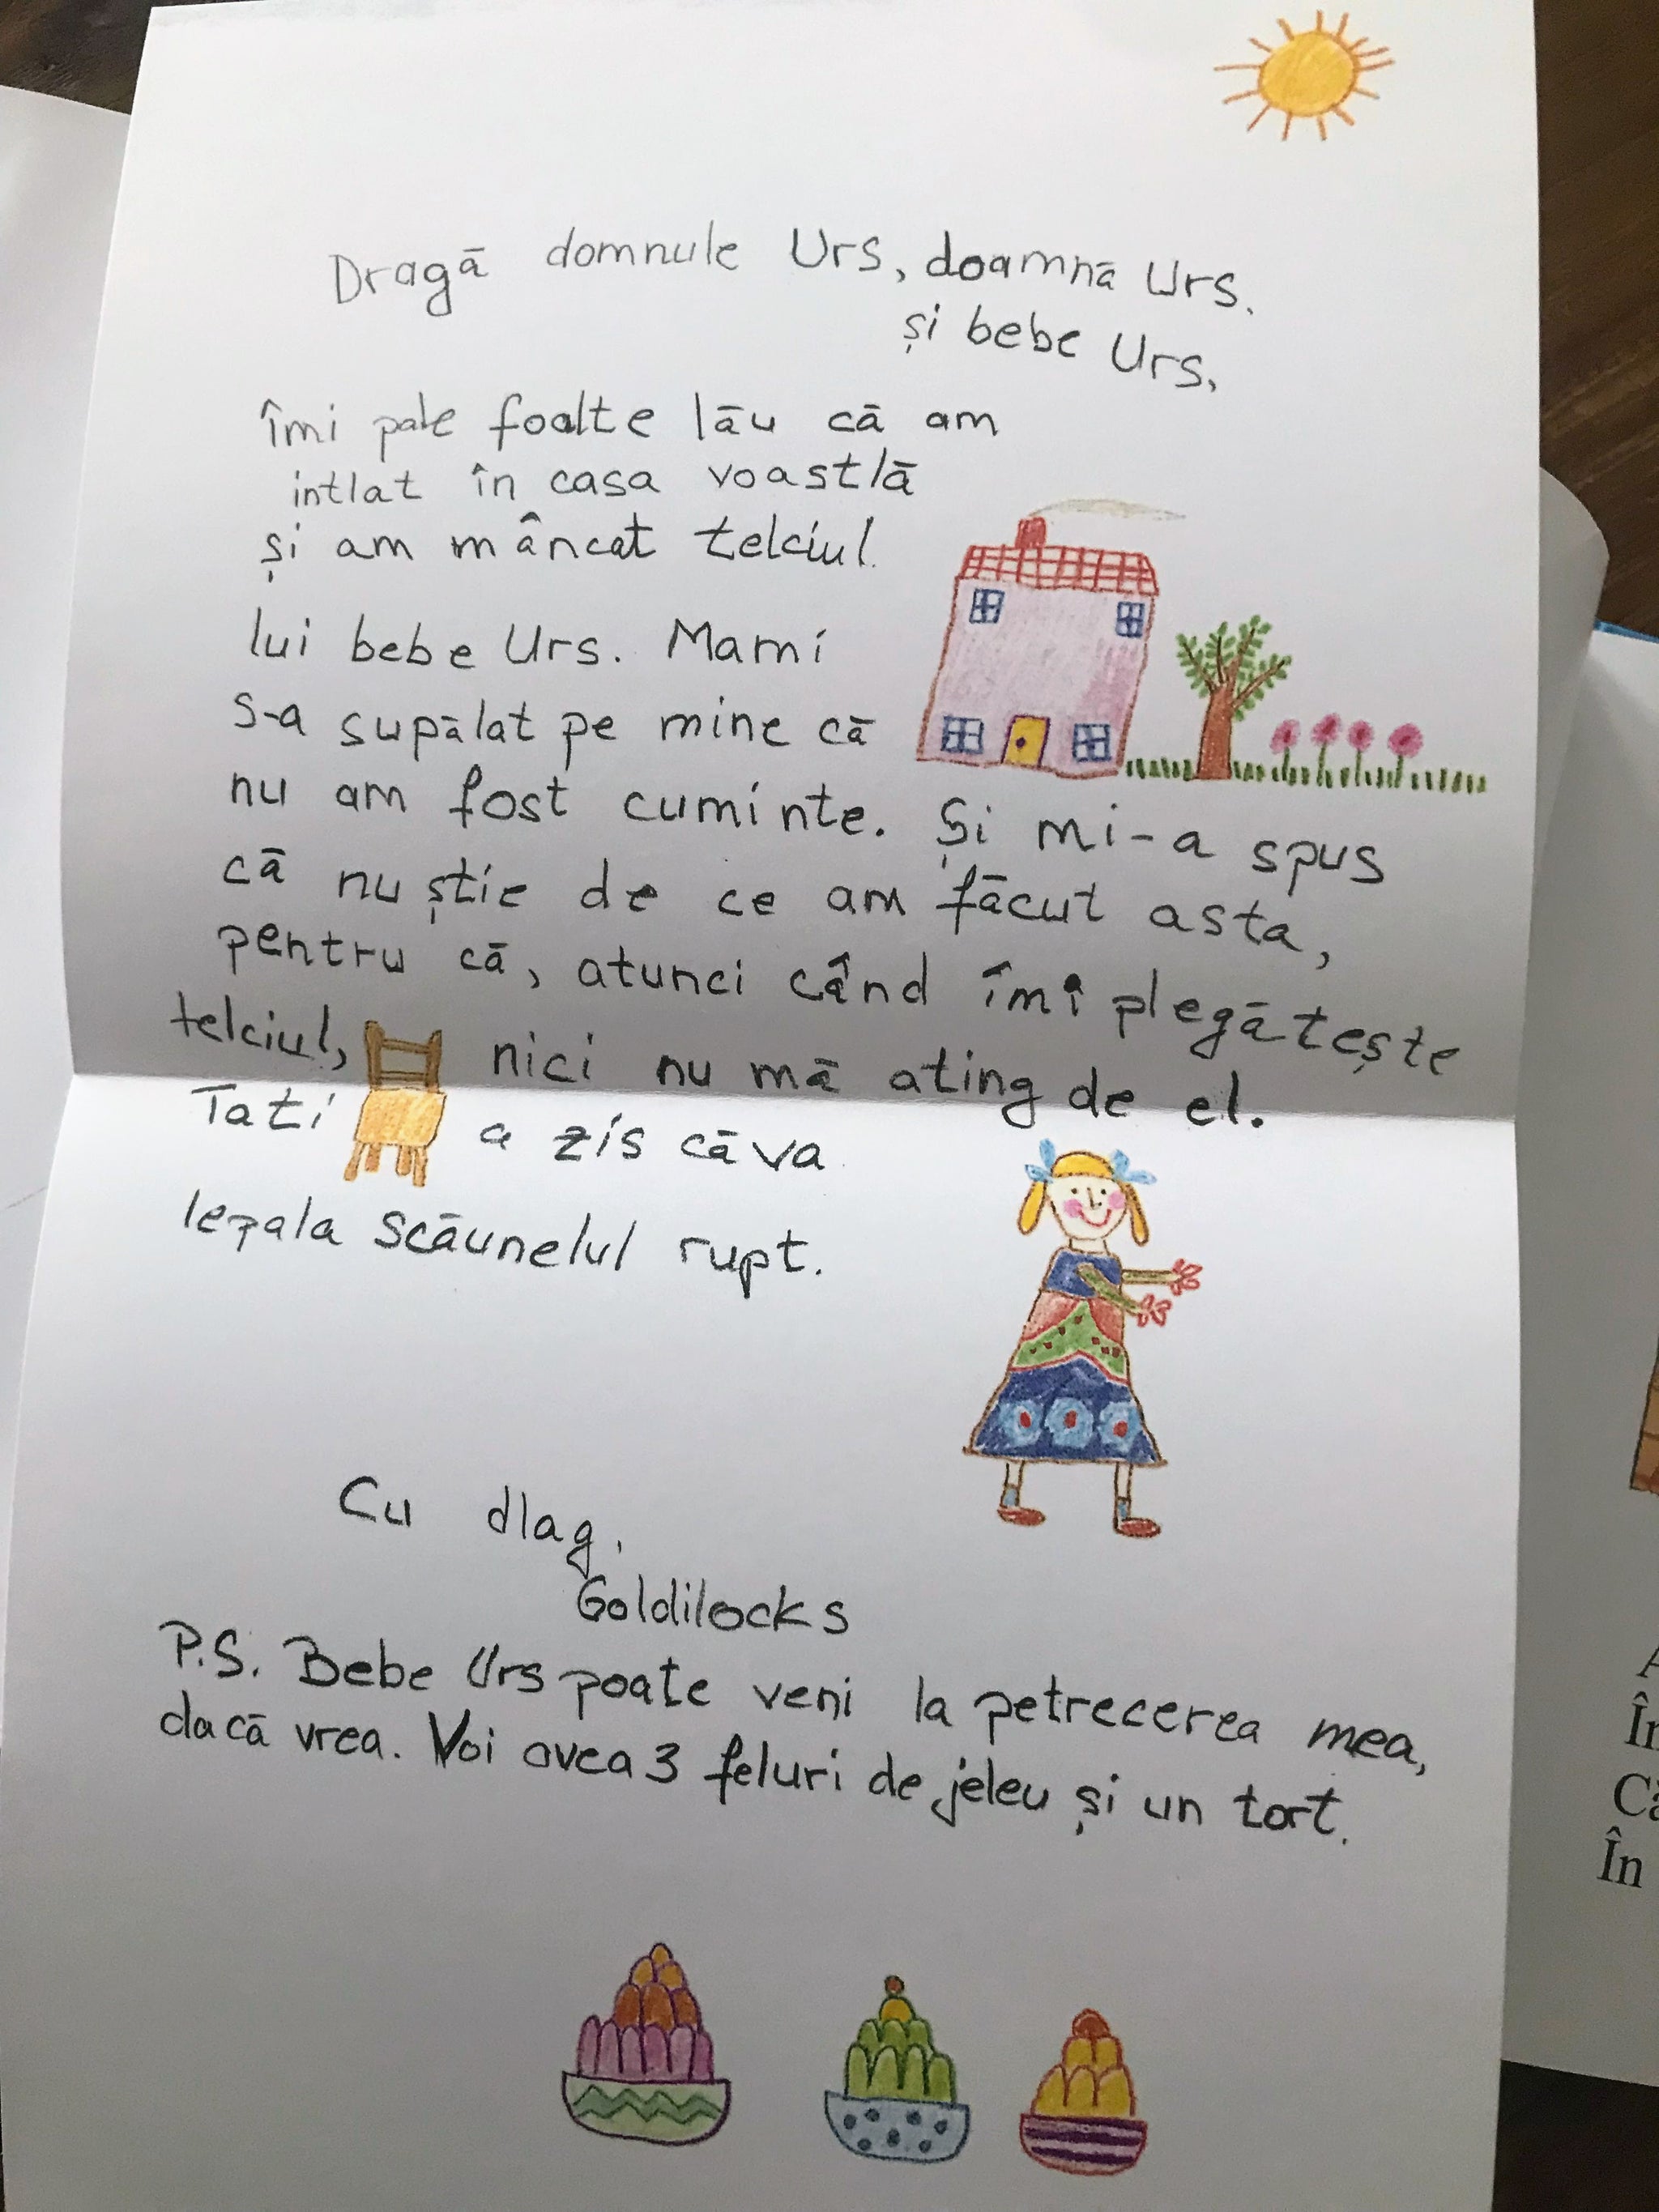 Dragă domnule Urs, doamnă Urs.
și bebe Urs,
îmi pale foalte lău că am
intlat în casa voastlă
și am mâncat telciul
lui bebe Urs. Mami
s-a supălat pe mine că
nu am fost cuminte. Și mi-a spus
că nu știe de ce am făcut asta,
pentru că, atunci când îmi plegătește
telciul, nici nu mă ating de el.
Tati a zis că va
lepala scăunelul rupt.
Cu dlag,
Goldilocks
P.S. Bebe Urs poate veni la petrecerea mea,
dacă vrea. Voi avea 3 feluri de jeleu și un tort.
În